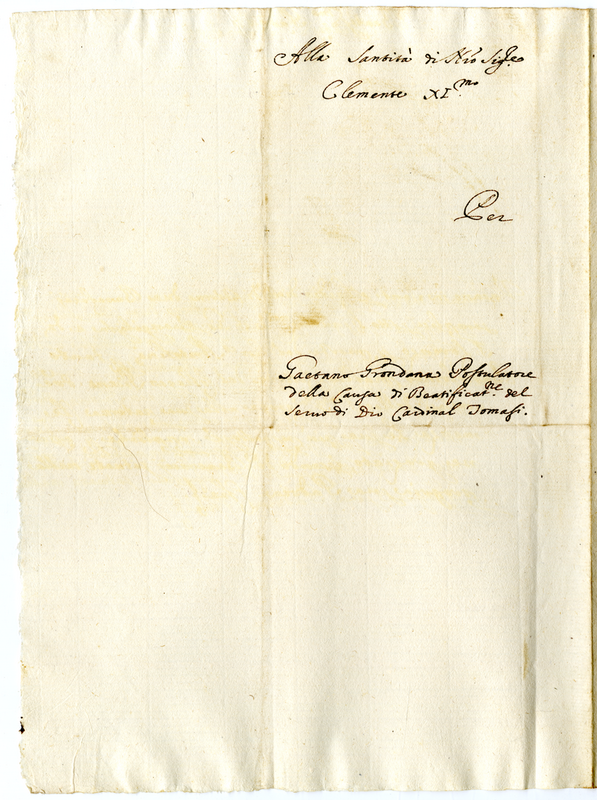 Alla Santità di Nro Sigre
Clemente XI.mo
Per
Gaetano Grondana Postulatore
della Causa di Beatificat.ne del
Servo di Dio Cardinal Tomasi.